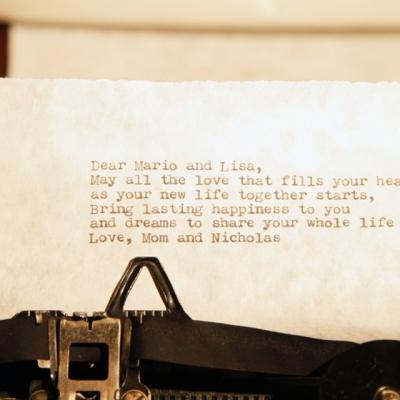 Dear Mario and Lisa,
May all the love that fills your hea
as your new life together starts,
Bring lasting happiness to you
and dreams to share your whole life
Love, Mom and Nicholas